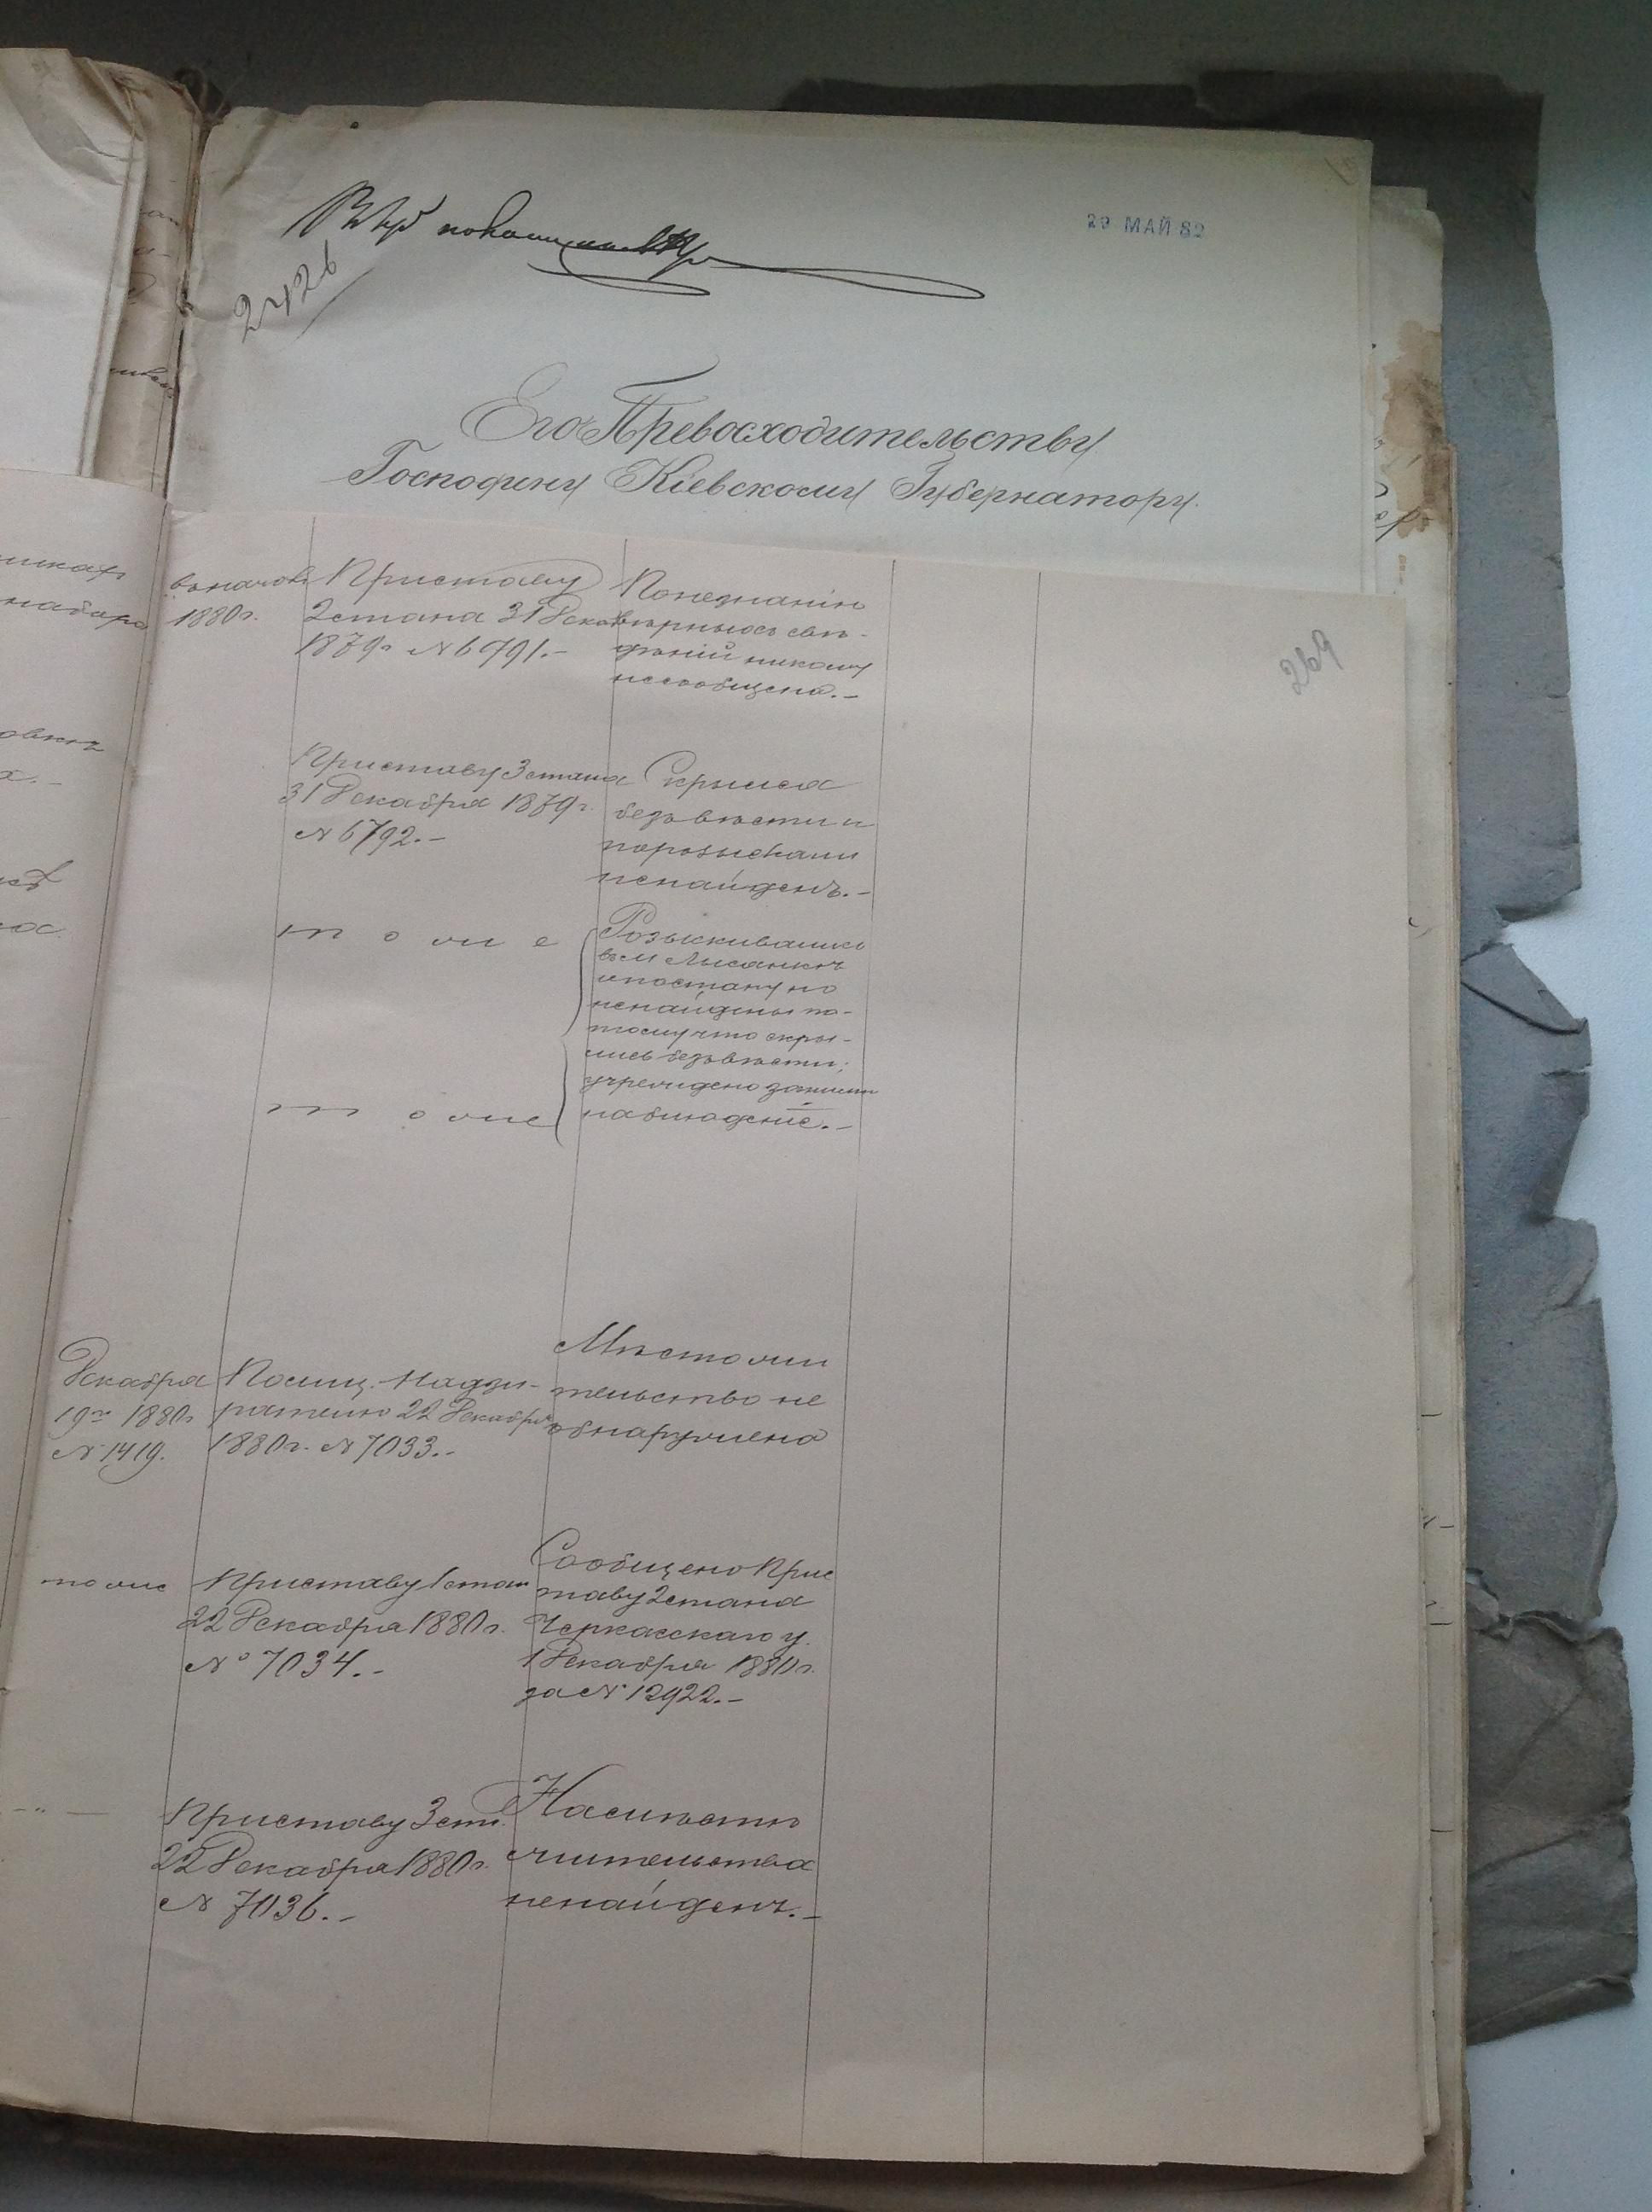 29 МАЙ 82
2426
Его Превосходительству
Господину Кіевскому Губернатору.
269
1880 г.
Приставу
2 стана 31 Декаб
1879 г № 6791.–
Понезнанію
вѣрныхъ свѣ-
дѣній никому
несообщено.–
Приставу 3 стана
31 Декабря 1879 г.
№ 6792.–
Скрылся
безъ вѣсти и
порозысками
ненайденъ.–
тоже
Розыскивались
въ м Лисянкѣ
и по стану но
ненайдены по-
тому что скры-
лись безъ вѣсти;
учреждено за ними
наблюденіе.–
тоже
Декабря
19го 1880 г
№ 1419.
Полиц. Надзи-
рателю 22 Декабря
1880 г. № 7033.–
Мѣстожи
тельство не
обнаружено
тоже
Приставу 1 стан
22 Декабря 1880 г.
№ 7034.–
Сообщено Прис
таву 2 стана
Черкасскаго у.
1 Декабря 1880 г.
за № 12922.–
– " –
Приставу 3 ст.
22 Декабря 1880 г.
№ 7036.–
На мѣстѣ
жительства
ненайденъ.–